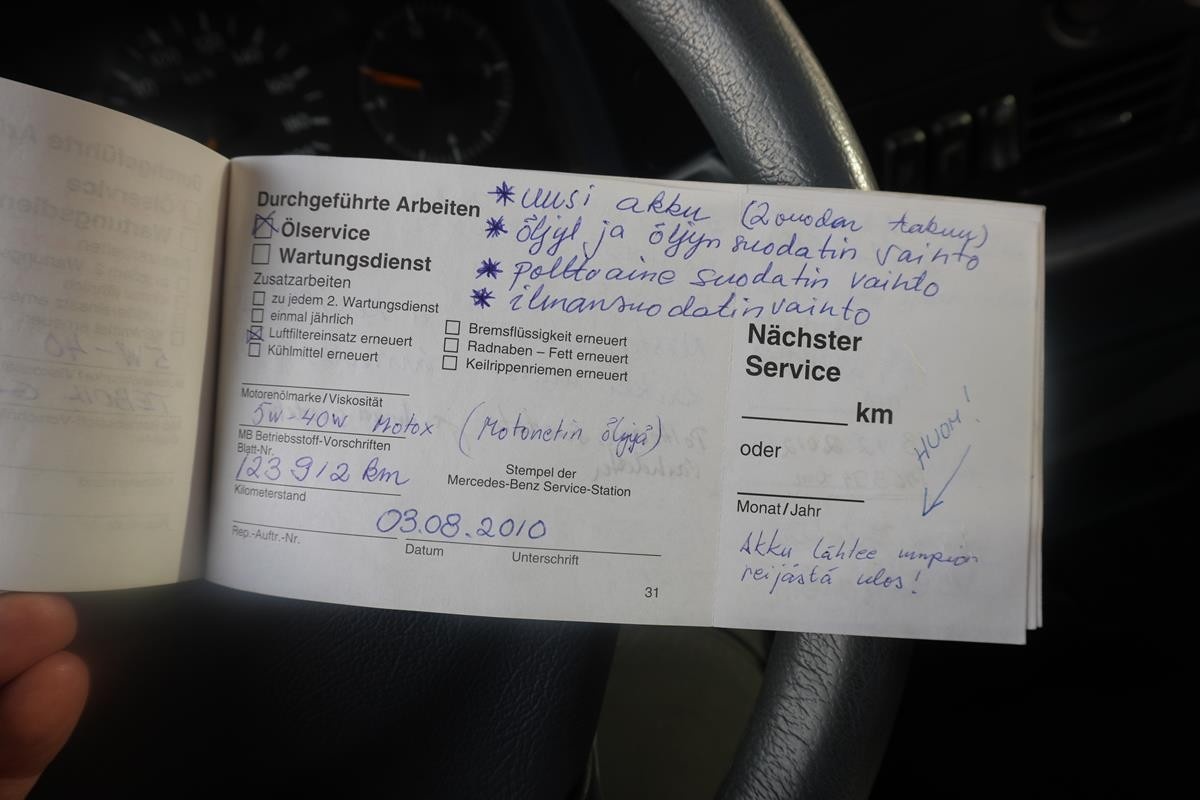 Durchgeführte Arbeiten
Ölservice
Wartungsdienst
Zusatzarbeiten
zu jedem 2. Wartungsdienst
einmal jährlich
Luftfiltereinsatz erneuert
Kühlmittel erneuert
Bremsflüssigkeit erneuert
Radnaben – Fett erneuert
Keilrippenriemen erneuert
* uusi akku (2 vuoden takuu)
* öljyt ja öljynsuodatin vaihto
* polttoaine suodatin vaihto
* ilmansuodatin vaihto
Motorenölmarke/Viskosität
5W-40W Motox (Motonetin öljyä)
MB Betriebsstoff-Vorschriften
Blatt-Nr.
123 912 km
Kilometerstand
Stempel der
Mercedes-Benz Service-Station
03.08.2010
Rep.-Auftr.-Nr.
Datum
Unterschrift
31
Nächster
Service
km
oder
Monat/Jahr
HUOM!
Akku lähtee umpion
reijästä ulos!
5W-40
TEBOIL